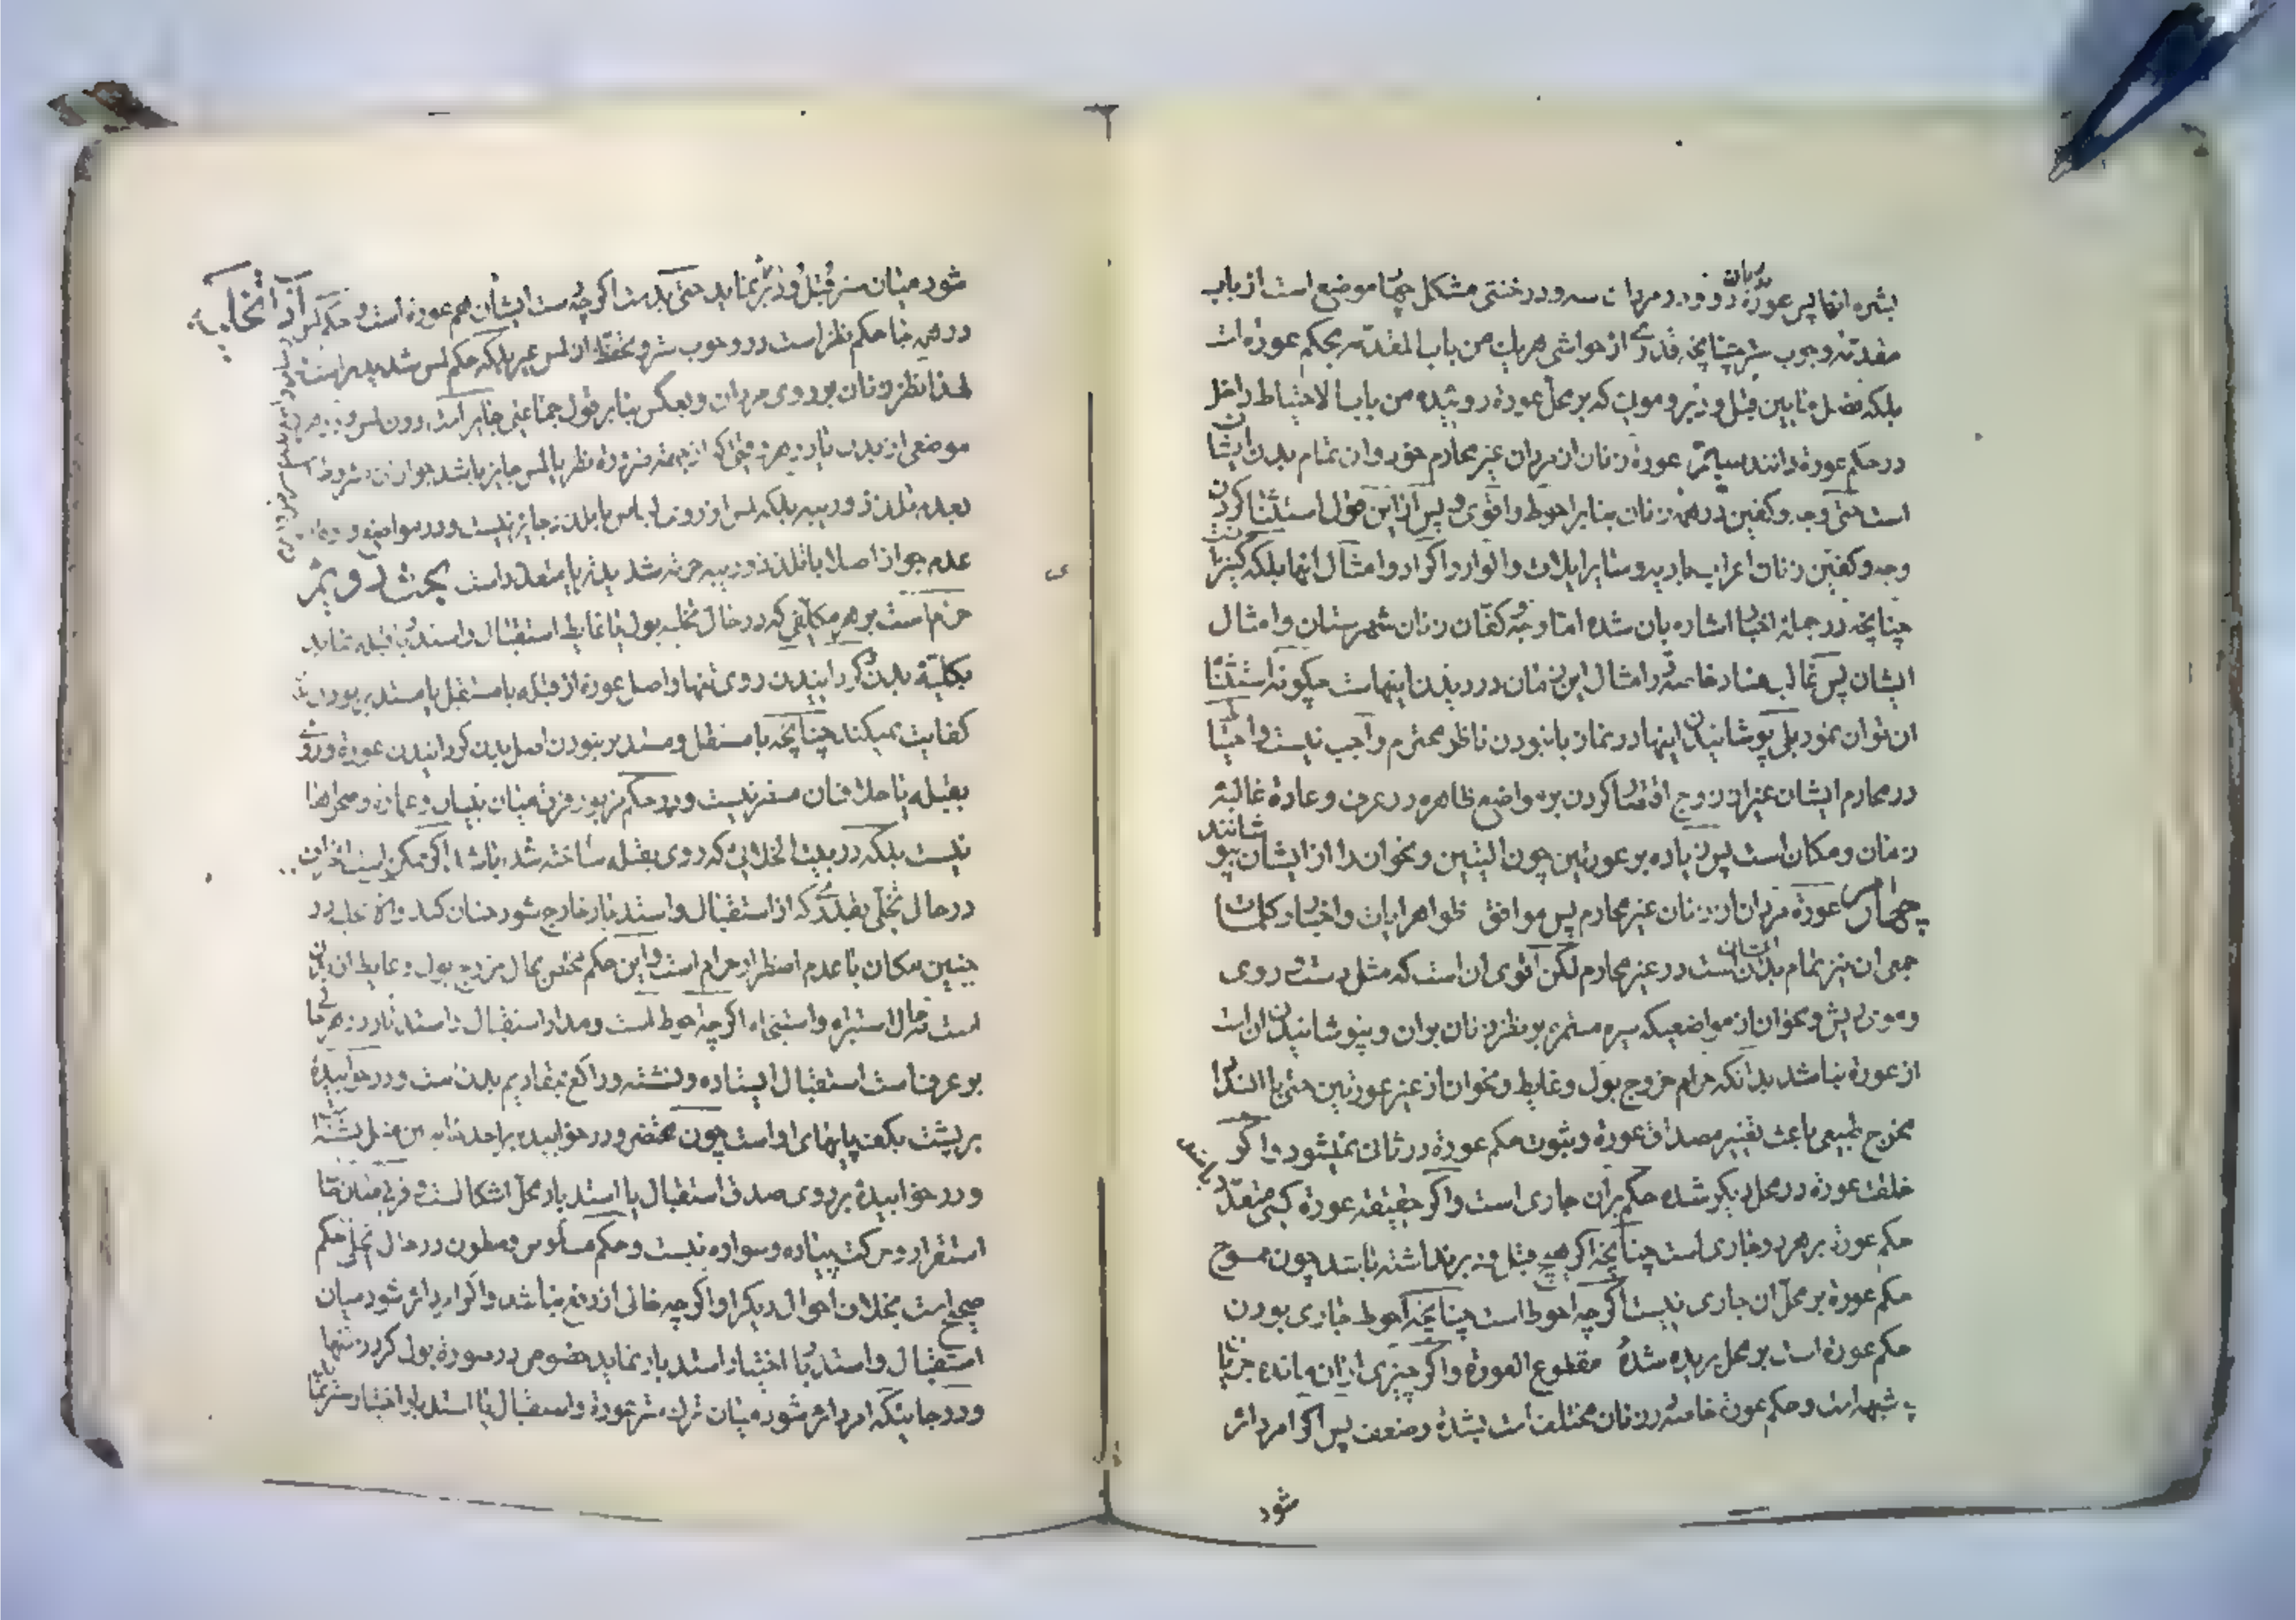 بشره انها پس عورة زنان دو و در مردان سه و در خنثی مشکل چهار موضع است از باب
مقدمه وجوب ستر چنانچه قدری از حواشی هر یک من باب المقدمه بحکم عورة است
بلکه فصل مابین قبل و دبر و موی که بر محل عورة روئیده من باب الاحتیاط داخل
در حکم عورة دانند سیم عورة زنان از مردان غیر محارم خود و ان تمام بدن ایشان
است حتی وجه و کفین در همه زنان بنابر احوط و اقوی و پس از این قول استثنا کردن
وجه و کفین زنان اعراب بادیه و سایر ایلات و الوار و اکراد و امثال انها بلکه کنیز
چنانچه در جمله اخبار اشاره بان شده اما وجه و کفان زنان شهرستان و امثال
ایشان پس غالب فساد خاصه در امثال این زمان در دیدن اینهاست چگونه استثنا
ان توان نمود بلی پوشانیدن اینها در نماز با نبودن ناظر محترم واجب نیست و احتیاط
در محارم ایشان غیر از زوج اقتصار کردن بر مواضع ظاهره در عرف و عادة غالبه
زمان و مکان است پس زیاده بر عورتین چون الیتین و نحو ان را از ایشان بپوشانند
چهارم عورة مردان از زنان غیر محارم پس موافق ظواهر ایات و اخبار و کلمات
جمعی ان نیز تمام بدن ایشان است در غیر محارم لکن اقوی ان است که مثل دست و روی
و موی ریش و نحو ان از مواضعیکه سیره مستمره بر نظر زنان بران و نپوشانیدن ان است
از عورة نباشد بدانکه حرام خروج بول و غایط و نحو ان از غیر عورتین حتی با انسداد
مخرج طبیعی باعث تغییر مصداق عورة و ثبوت حکم عورة در ثانی نمیشود و اگر
خلقت عورة در محل دیگر شده حکم بران جاری است و اگر حقیقه عورة کسی متعدد باشد
حکم عورة بر هر دو جاری است چنانچه اگر هیچ قبل و دبر نداشته باشد چون ممسوح
حکم عورة بر محل ان جاری نیست اگر چه احوط است چنانچه احوط جاری بودن
حکم عورة است بر محل بریده شده مقطوع العورة و اگر چیزی از ان مانده
شبهه است و حکم عورة خاصه در زنان مختلف است بشدة و ضعف پس اگر امر دائر
شود
شود میان ستر قبل و دبر نماید حتی بدست اگر چه دست ایشان هم عورة است و حکم لمس
در همه جا حکم نظر است در وجوب ستر و تحفظ از لمس غیر بلکه حکم لمس شدیدتر است
لهذا نظر زنان بر روی مردان و بعکس بنابر قول جماعتی جایز است دون لمس
موضعی از بدن یکدیگر
بعدم تلذذ و ریبه بلکه لمس از روی لباس با تلذذ جایز نیست و در مواضع
عدم جواز اصلا با تلذذ و ریبه حرمة شدیدتر یا متعدد است بحث دویم
حرام است بر هر مکلفی که در حال تخلیه بول یا غایط استقبال و استدبار قبله نماید
بکلیه بدن گردانیدن روی تنها و اصل عورة از قبله با مستقبل یا مستدبر بودن
کفایت نمیکند چنانچه با مستقبل و مستدبر نبودن اصل بدن گردانیدن عورة و روی
بقبله یا خلاف ان مضر نیست و در حکم مزبور فرق میان بنیان و عمارة و صحراها
نیست بلکه در بیت الخلائی که روی بقبله ساخته شده باشد اگر ممکن است انحراف
در حال تخلی بقدری که از استقبال و استدبار خارج شود چنان کند و الا تخلی در
چنین مکان با عدم اضطرار حرام است و این حکم مختص بحال خروج بول و غایط
است نه حال استبراء و استنجاء اگر چه احوط است و مدار استقبال و استدبار در هر جا
بر عرف است استقبال ایستاده و نشسته و راکع بمقادیم بدن است و در خوابیده
بر پشت بکف پاهای او است چون محتضر و در خوابیده بر احد جانبین
و در خوابیده بر روی صدق استقبال یا استدبار محل اشکال است و فرق میان حال
استقرار و حرکت پیاده و سواره نیست و حکم مسلوس و مبطون در حال تخلی حکم
صحیح است بخلاف احوال دیگر او اگر چه خالی از منع نباشد و اگر امر دائر شود میان
استقبال و استدبار اختیار استدبار نماید خصوص در صورة بول کردن تنها
و در جائیکه امر دائر شود میان ترک ستر عورة و استقبال یا استدبار اختیار ستر نماید